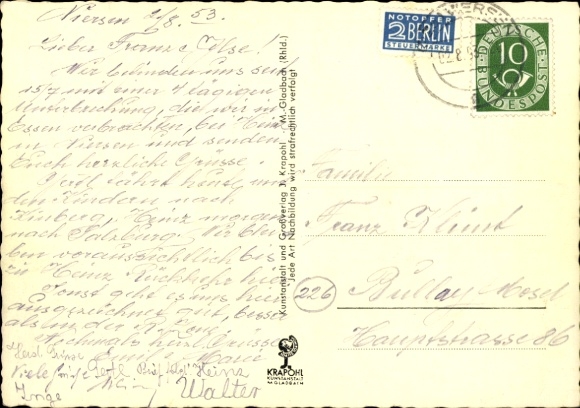 Viersen 2/8. 53.
Lieber Franz u. Ilse!
Wir befinden uns seit
15/7 nach einer 4 tägigen
Unterbrechung, die wir in
Essen verbrachten, bei Heinz
in Viersen und senden
Euch herzliche Grüsse.
Gertl fährt heute mit
den Kindern nach
Heinz morgen
nach Salzburg. Wir
ben voraussichtlich bis
zu Heinz Rückkehr hier
Sonst geht es uns hier
ausgezeichnet gut, besser
als in der
Nochmals herzl. Grüsse
Marie
Herzl. Grüsse
Viele Grüße Gertl Heinz
Inge Walter
Kunstanstalt und Großverlag J. Krapohl · M.-Gladbach (Rhld.)
Jede Art Nachbildung wird strafrechtlich verfolgt
KRAPOHL
KUNSTANSTALT
M.GLADBACH
NOTOPFER
2 BERLIN
STEUERMARKE
VIERSEN
DEUTSCHE
10
BUNDESPOST
Familie
Franz Klünt
(22b) Bullay Mosel
Hauptstrasse 86